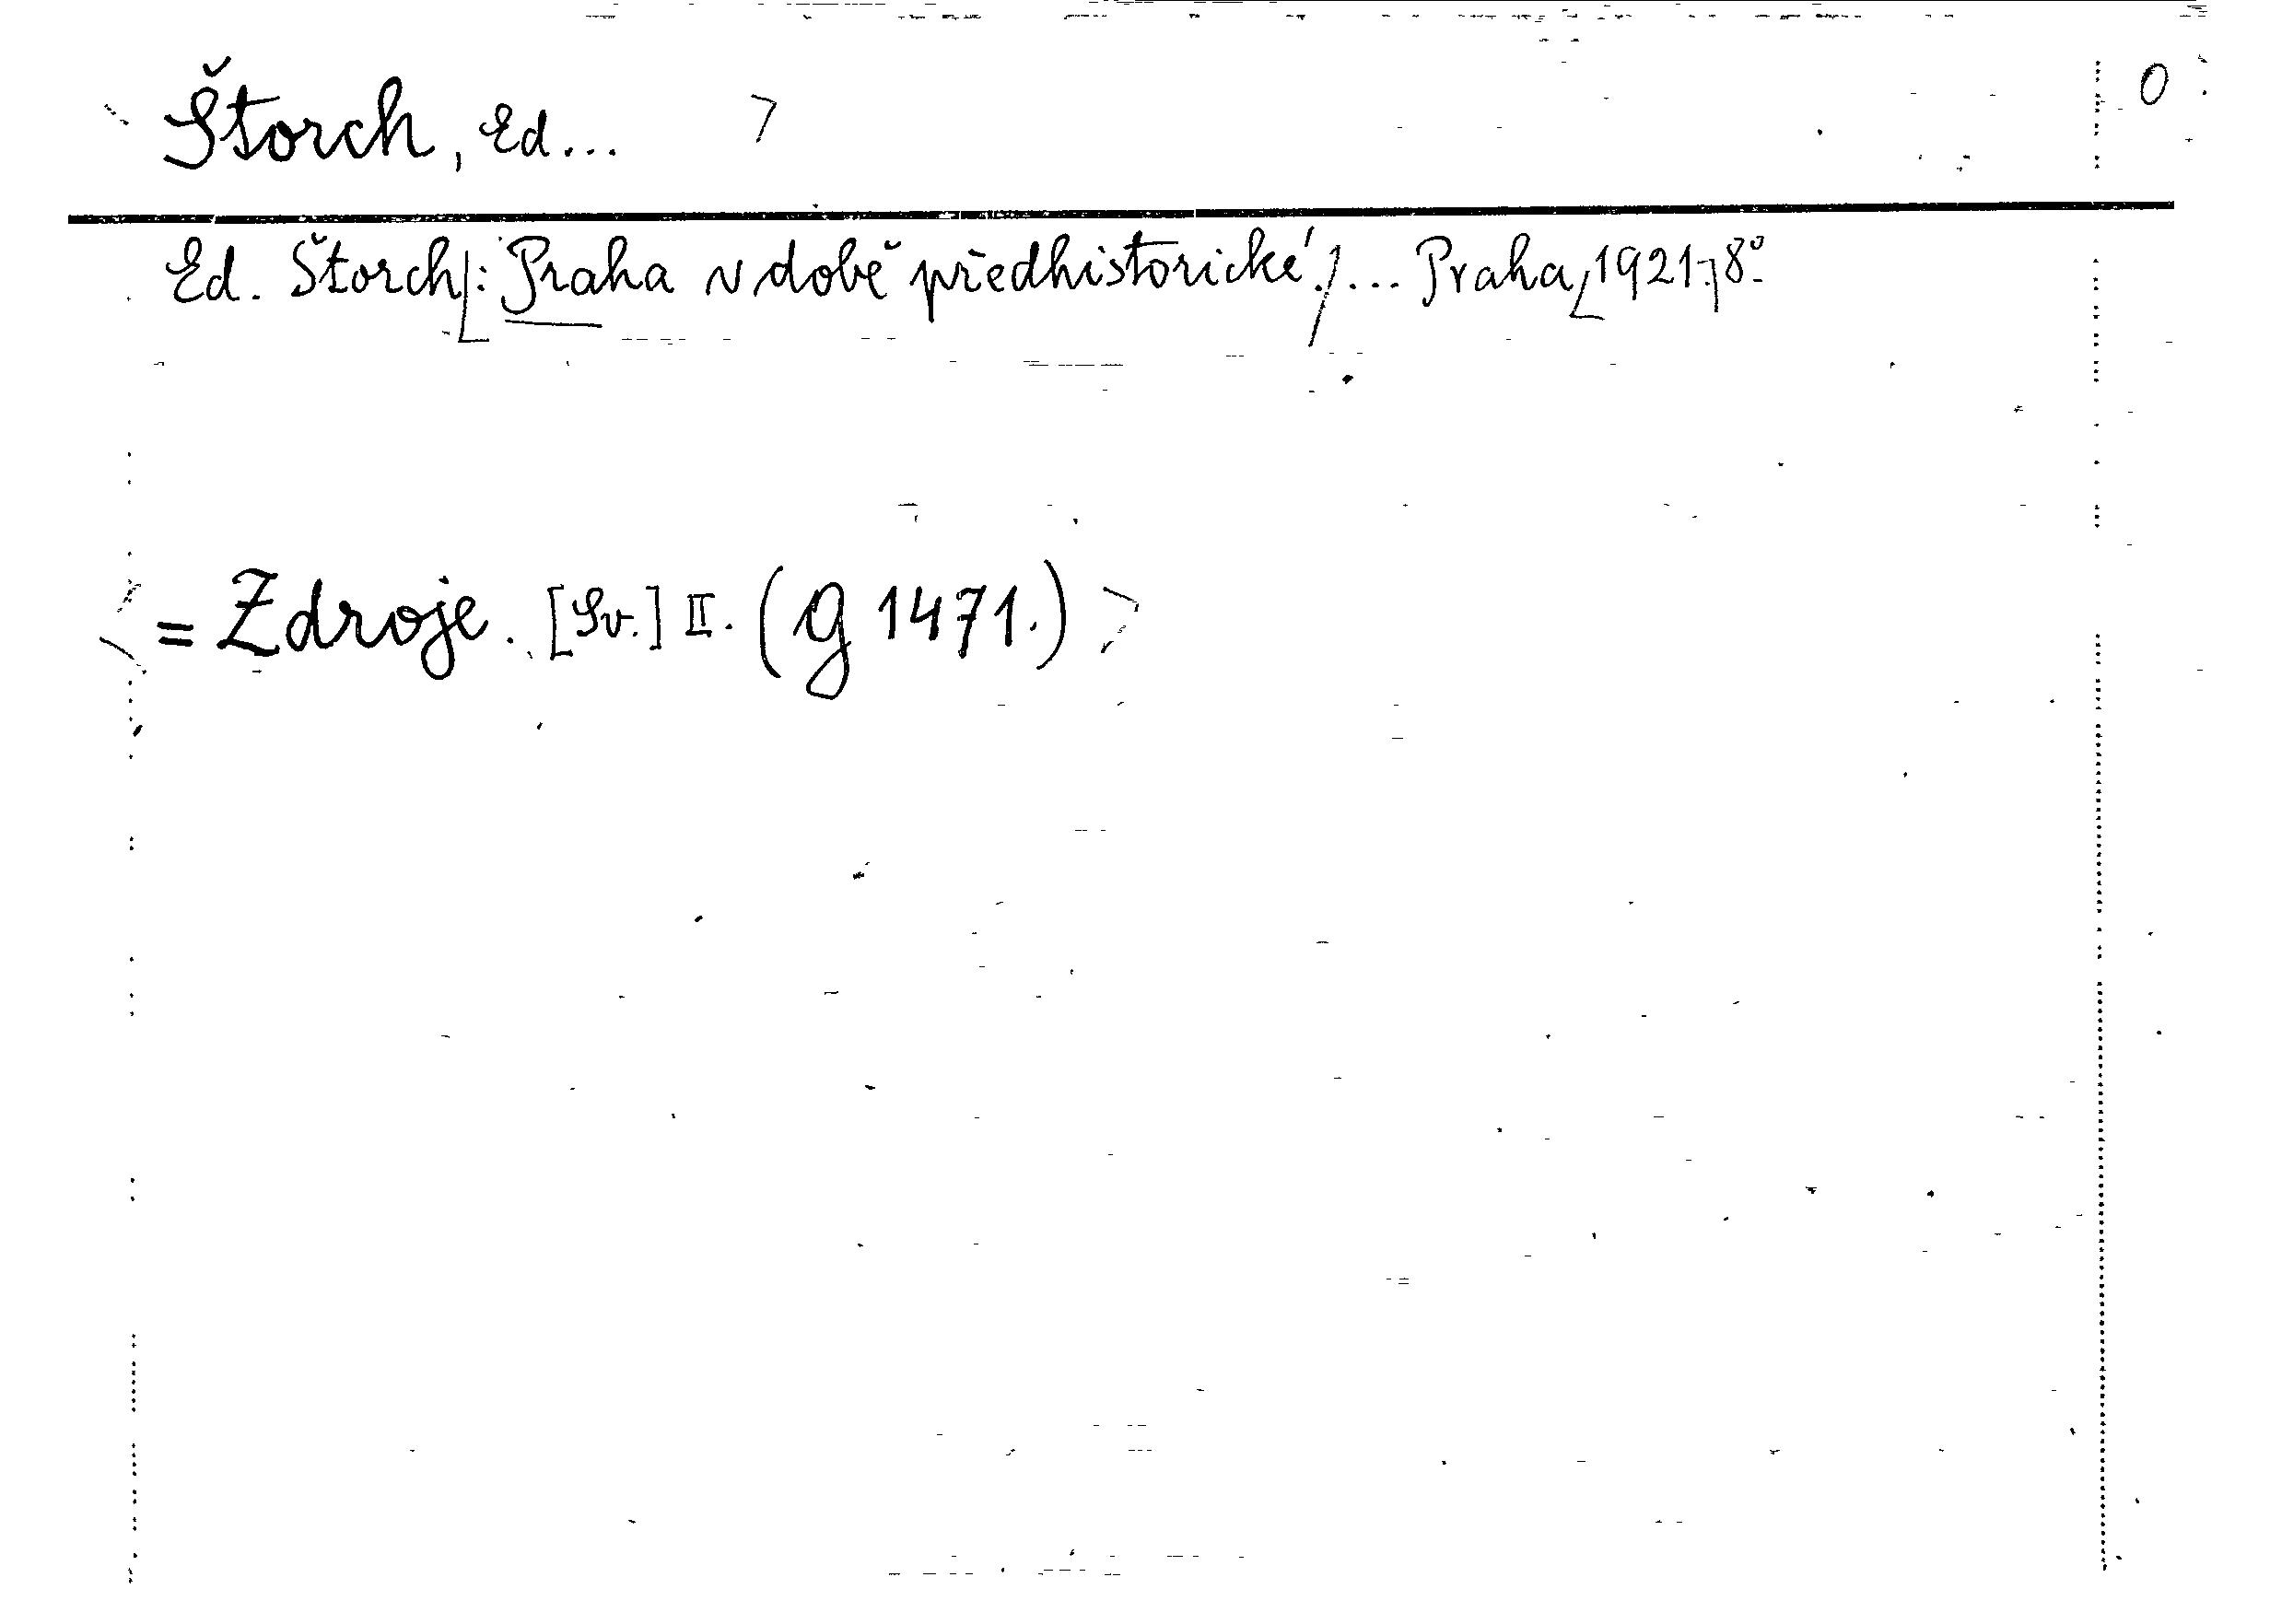 Štorch, Ed... 0
Ed. Štorch: Praha v době předhistorické. ... Praha, 1921. 8°
= Zdroje. [Sv.] II. (g 1471.)